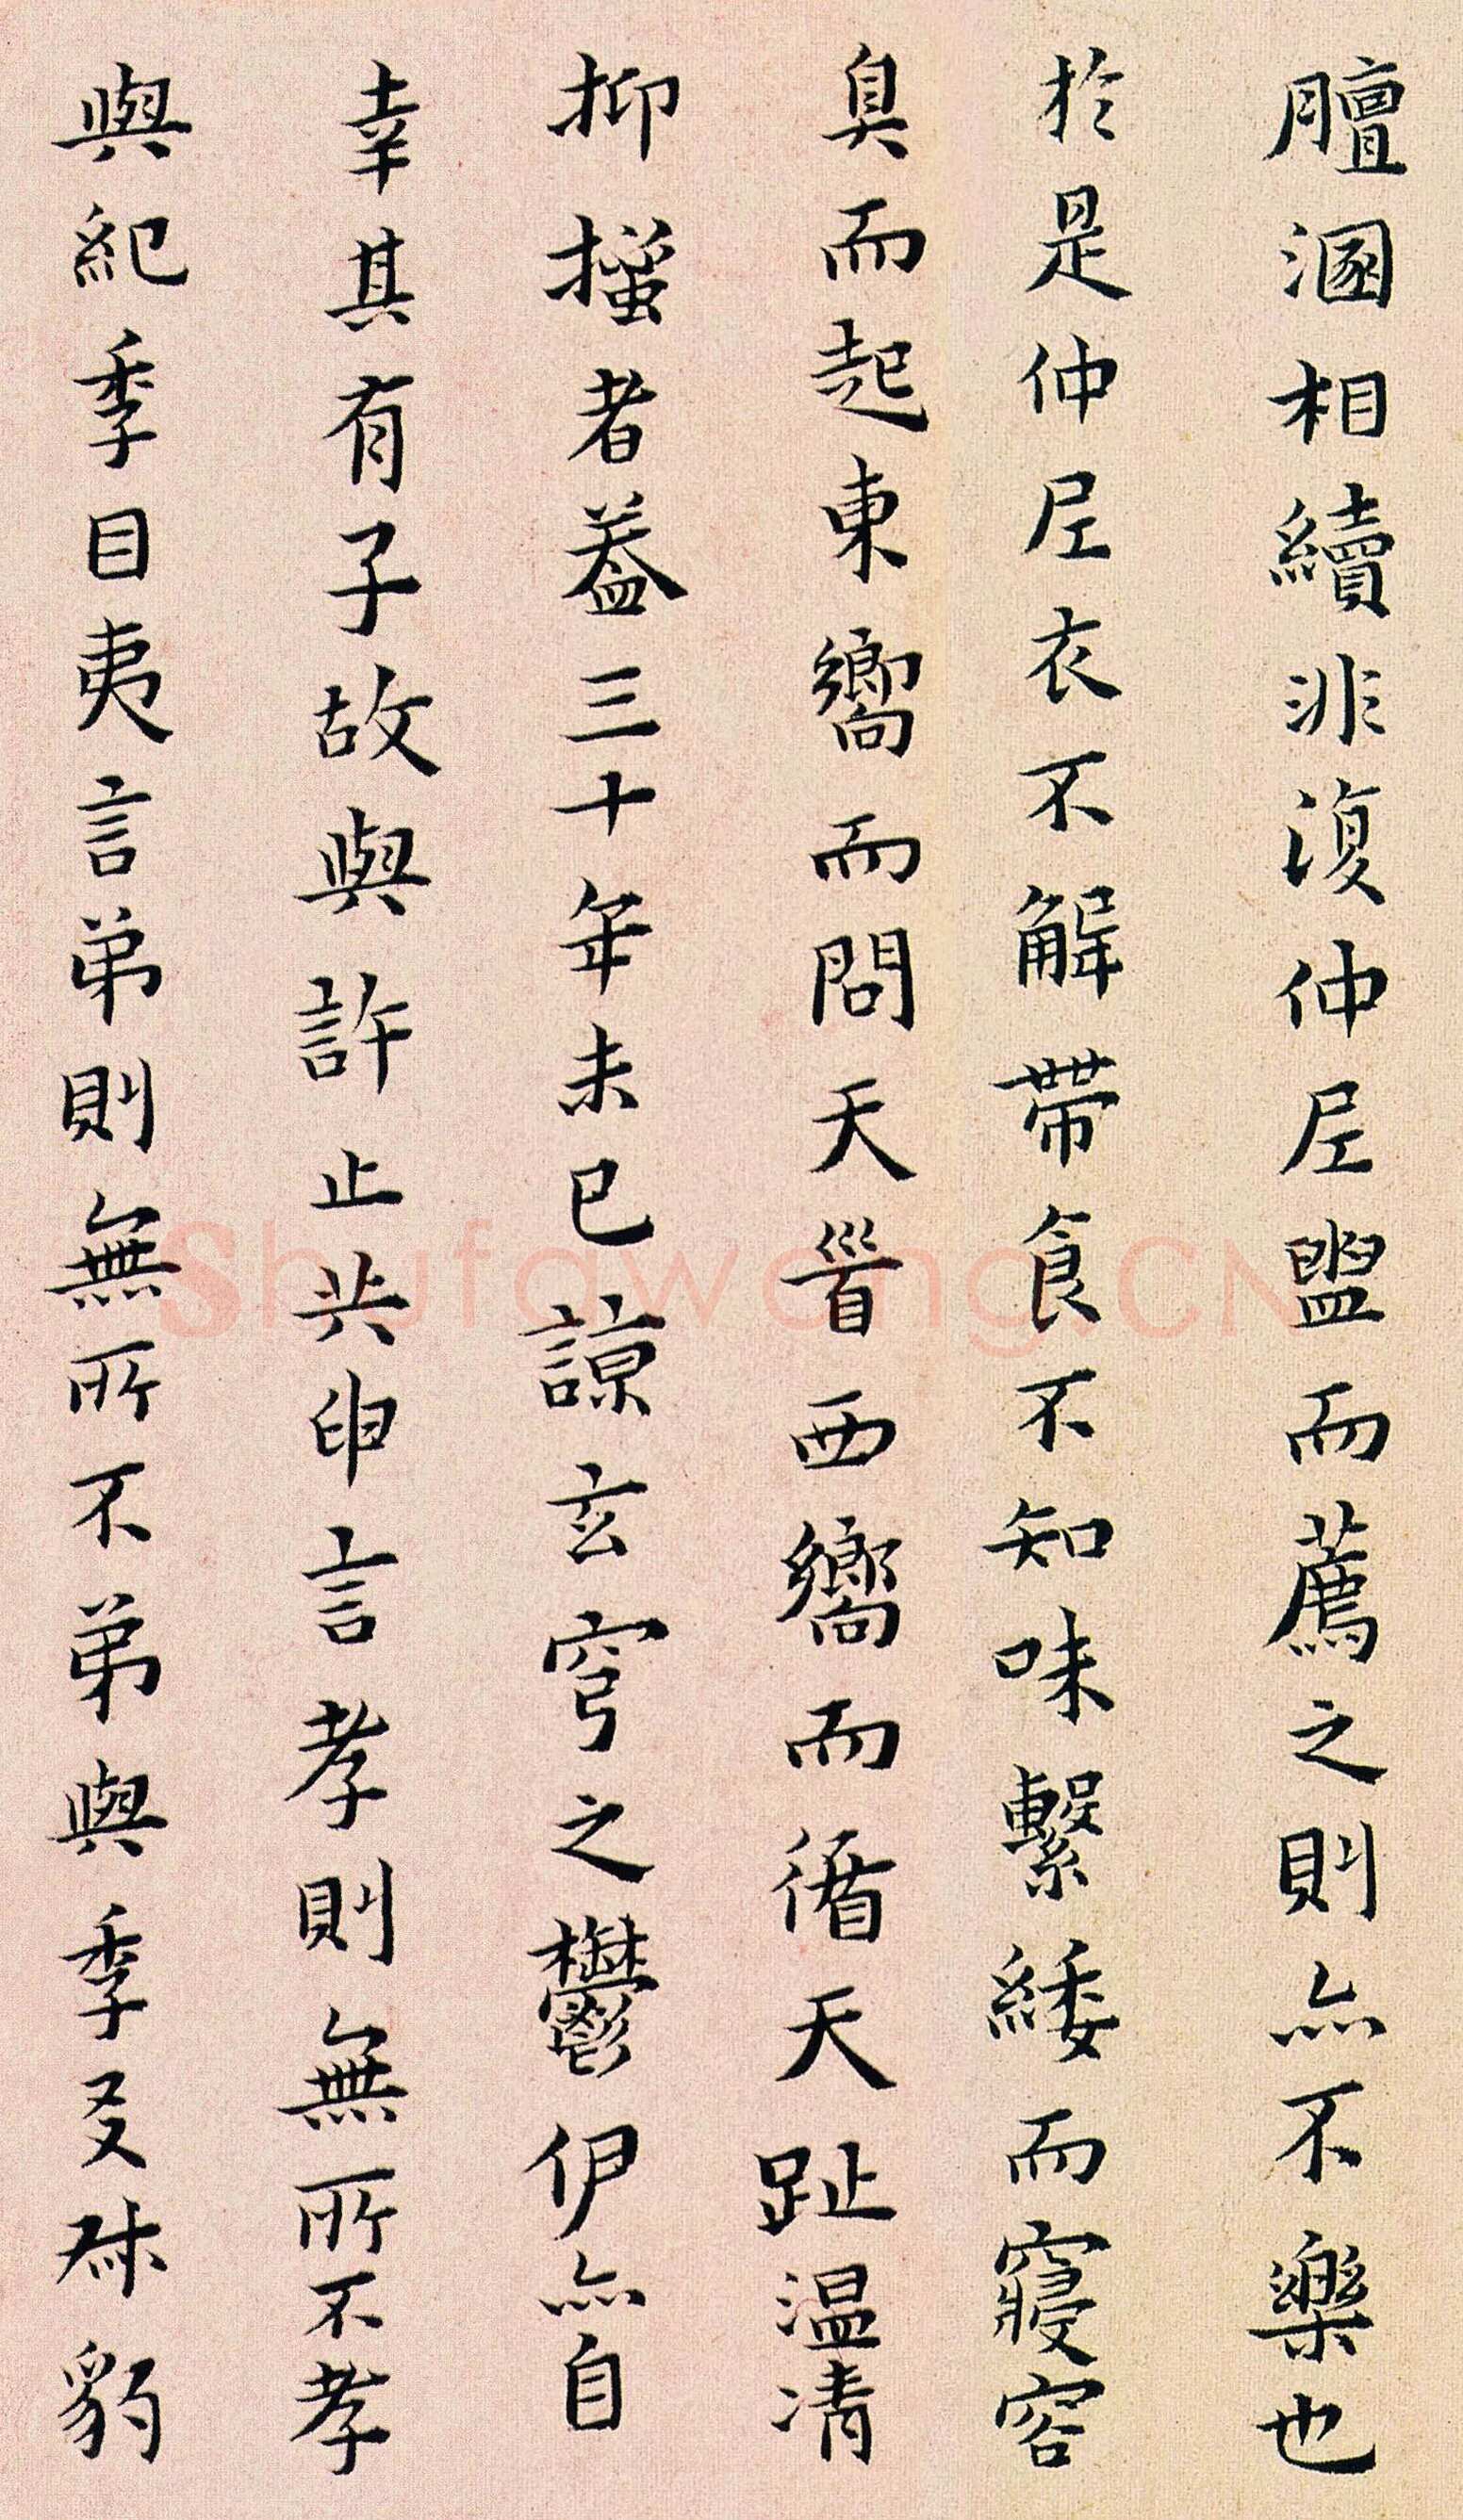 膻溷相續非湏仲𡰥盥而薦之則亦不樂也
於是仲𡰥衣不解帶食不知味繫緌而寢容
臭而起東嚮而問天晉西嚮而循天趾温凊
抑搔者葢三十年未已諒玄穹之鬱伊亦自
幸其有子故與許止共申言孝則無所不孝
與紀季目夷言弟則無所不弟與季叐叔豹
Shufawang.CN